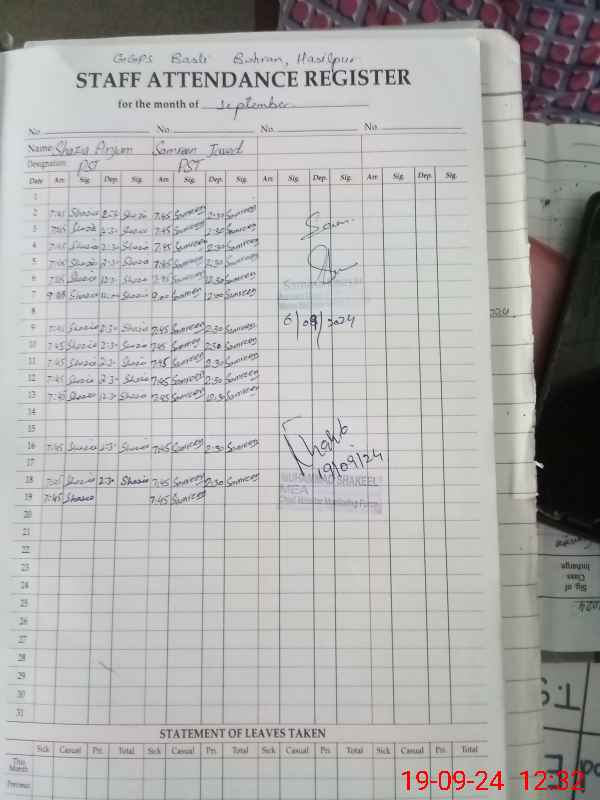 GGPS Basti Bohran, Hasilpur
STAFF ATTENDANCE REGISTER
for the month of September
No. No. No. No.
Name Shazia Anjum Samreen Javed
Designation PST PST
Date Arr. Sig. Dep. Sig. Arr. Sig. Dep. Sig. Arr. Sig. Dep. Sig. Arr. Sig. Dep. Sig.
1
2 7:45 Shazia 2:30 Shazia 7:45 Samreen 2:30 Samreen
3 7:45 Shazia 2:30 Shazia 7:45 Samreen 2:30 Samreen
4 7:45 Shazia 2:30 Shazia 7:45 Samreen 2:30 Samreen
5 7:45 Shazia 2:30 Shazia 7:45 Samreen 2:30 Samreen
6 7:45 Shazia 12:30 Shazia 7:45 Samreen 12:30 Samreen
7 Shazia Shazia Samreen 12:00 Samreen
8
6/09/2024
9 7:45 Shazia 2:30 Shazia 7:45 Samreen 2:30 Samreen
10 7:45 Shazia 2:30 Shazia 7:45 Samreen 2:30 Samreen
11 7:45 Shazia 2:30 Shazia 7:45 Samreen 2:30 Samreen
12 7:45 Shazia 2:30 Shazia 7:45 Samreen 2:30 Samreen
13 7:45 Shazia 12:30 Shazia 7:45 Samreen 12:30 Samreen
14
15
16 7:45 Shazia 2:30 Shazia 7:45 Samreen 2:30 Samreen
17
19/09/24
18 7:45 Shazia 2:30 Shazia 7:45 Samreen 2:30 Samreen
MUHAMMAD SHAKEEL
19 7:45 Shazia 7:45 Samreen
MEA
Chief Minister Monitoring Force
20
21
22
23
24
25
26
27
28
29
30
31
STATEMENT OF LEAVES TAKEN
Sick Casual Pri. Total Sick Casual Pri. Total Sick Casual Pri. Total Sick Casual Pri. Total
This Month
Previous
Sig. of Class Incharge
2024
19-09-24 12:32